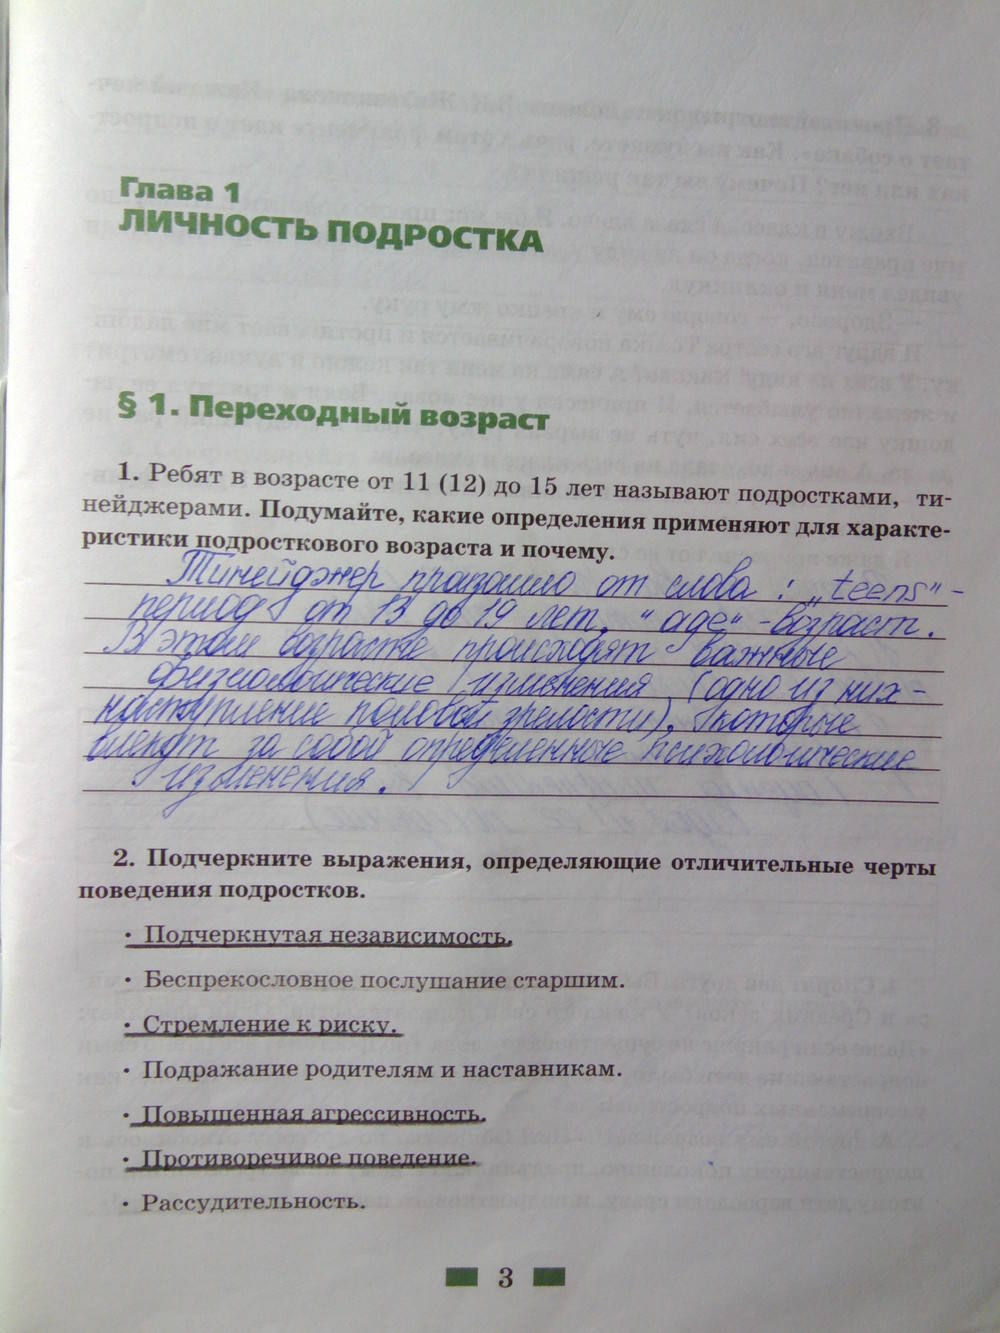 Глава 1
ЛИЧНОСТЬ ПОДРОСТКА
§ 1. Переходный возраст
1. Ребят в возрасте от 11 (12) до 15 лет называют подростками, ти-
нейджерами. Подумайте, какие определения применяют для характе-
ристики подросткового возраста и почему.
Тинейджер произошло от слова: „teens“ -
период от 13 до 19 лет, “age“ - возраст.
В этом возрасте происходят важные
физиологические изменения (одно из них -
наступление половой зрелости), которые
влекут за собой определенные психологические
изменения.
2. Подчеркните выражения, определяющие отличительные черты
поведения подростков.
• Подчеркнутая независимость.
• Беспрекословное послушание старшим.
• Стремление к риску.
• Подражание родителям и наставникам.
• Повышенная агрессивность.
• Противоречивое поведение.
• Рассудительность.
3